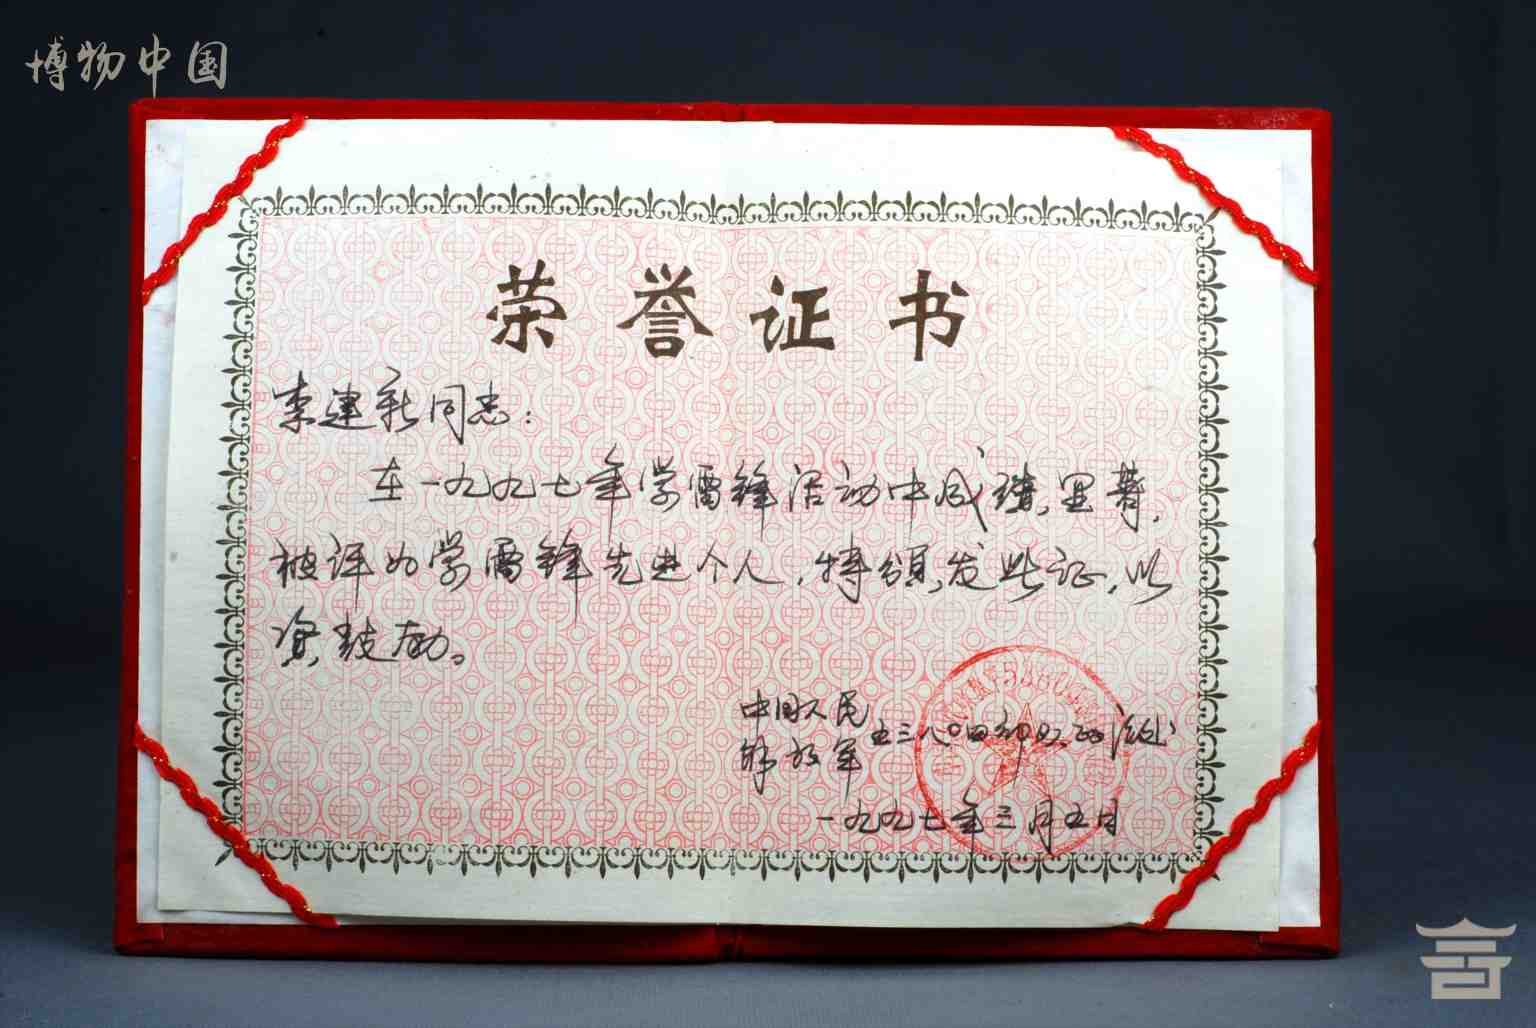 博物中国
荣誉证书
李建新同志:
在一九九七年学雷锋活动中成绩显著,
被评为学雷锋先进个人,特颁发此证,以
资鼓励。
中国人民
解放军 五三八〇四部队政治处
一九九七年三月五日